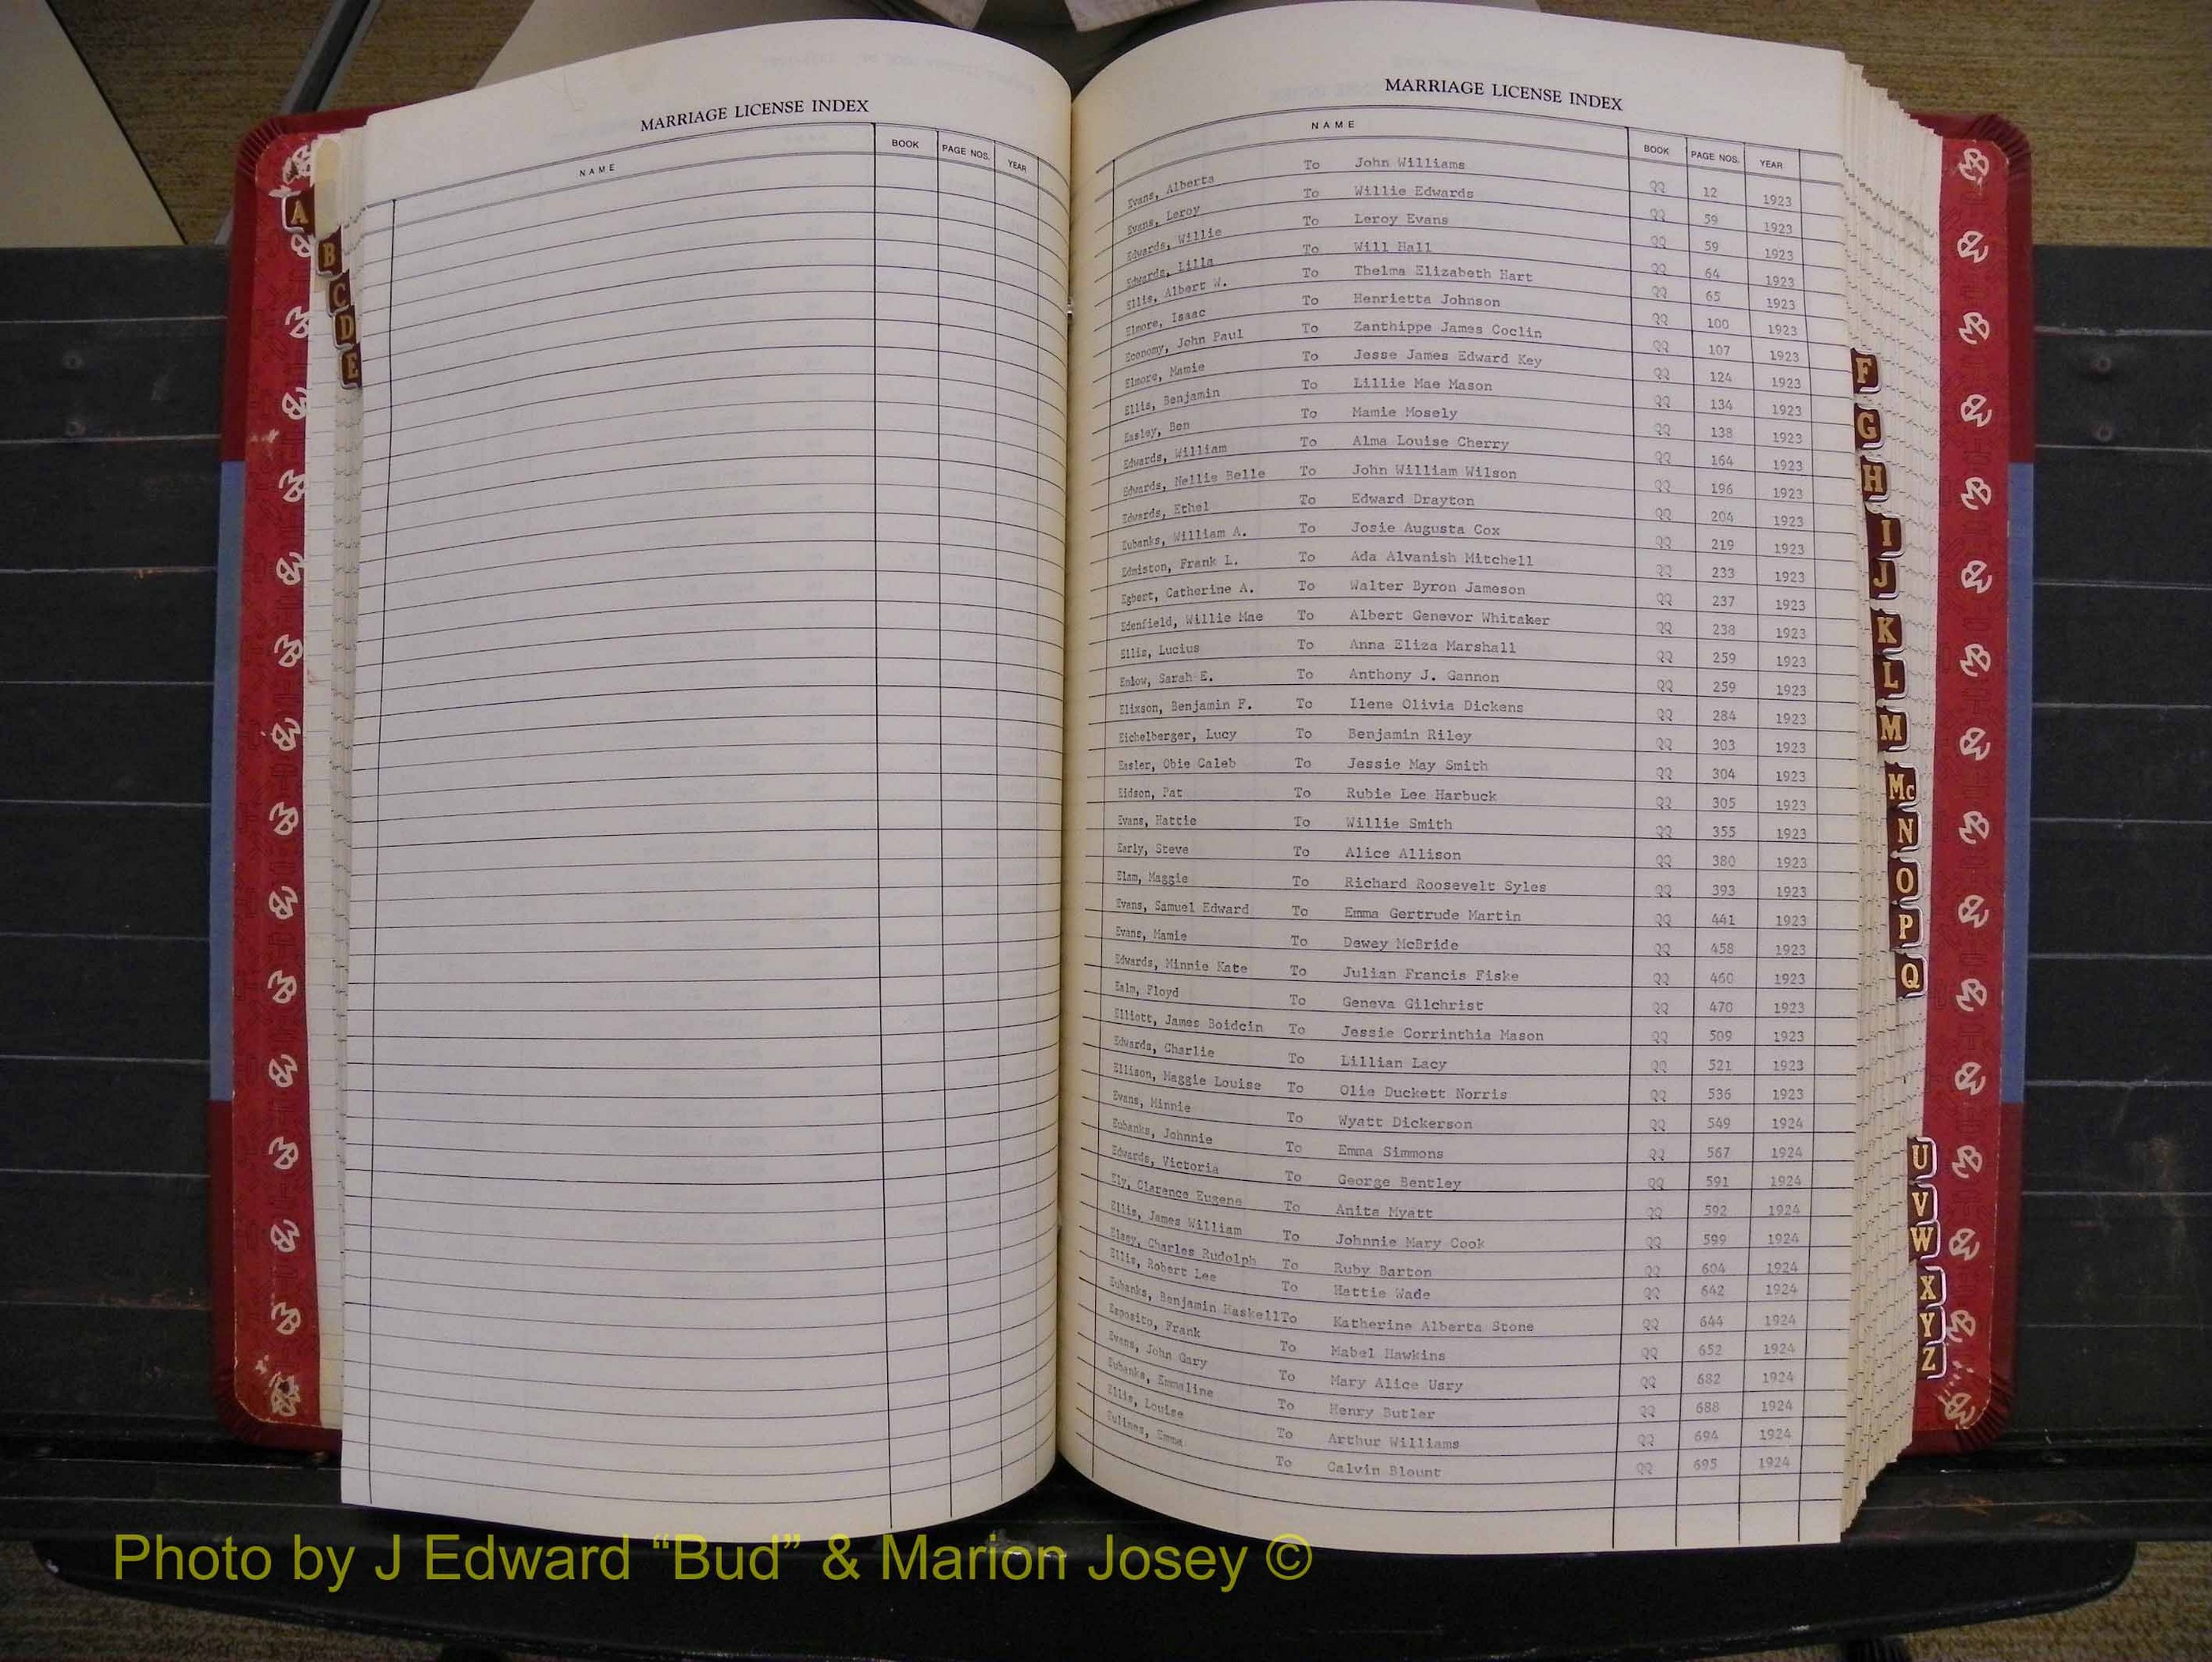 MARRIAGE LICENSE INDEX
NAME BOOK PAGE NOS. YEAR
A
B
C
D
E
MARRIAGE LICENSE INDEX
NAME BOOK PAGE NOS. YEAR
Evans, Alberta To John Williams QQ 12 1923
Evans, Leroy To Willie Edwards QQ 59 1923
Edwards, Willie To Leroy Evans QQ 59 1923
Edwards, Lilla To Will Hall QQ 64 1923
Ellis, Albert W. To Thelma Elizabeth Hart QQ 65 1923
Elmore, Isaac To Henrietta Johnson QQ 100 1923
Economy, John Paul To Zanthippe James Coclin QQ 107 1923
Elmore, Mamie To Jesse James Edward Key QQ 124 1923
Ellis, Benjamin To Lillie Mae Mason QQ 134 1923
Easley, Ben To Mamie Mosely QQ 138 1923
Edwards, William To Alma Louise Cherry QQ 164 1923
Edwards, Nellie Belle To John William Wilson QQ 196 1923
Edwards, Ethel To Edward Drayton QQ 204 1923
Eubanks, William A. To Josie Augusta Cox QQ 219 1923
Edmiston, Frank L. To Ada Alvanish Mitchell QQ 233 1923
Egbert, Catherine A. To Walter Byron Jameson QQ 237 1923
Edenfield, Willie Mae To Albert Genevor Whitaker QQ 238 1923
Ellis, Lucius To Anna Eliza Marshall QQ 259 1923
Enlow, Sarah E. To Anthony J. Gannon QQ 259 1923
Elixson, Benjamin F. To Ilene Olivia Dickens QQ 284 1923
Eichelberger, Lucy To Benjamin Riley QQ 303 1923
Easler, Obie Caleb To Jessie May Smith QQ 304 1923
Eidson, Pat To Rubie Lee Harbuck QQ 305 1923
Evans, Hattie To Willie Smith QQ 355 1923
Early, Steve To Alice Allison QQ 380 1923
Elam, Maggie To Richard Roosevelt Syles QQ 393 1923
Evans, Samuel Edward To Emma Gertrude Martin QQ 441 1923
Evans, Mamie To Dewey McBride QQ 458 1923
Edwards, Minnie Kate To Julian Francis Fiske QQ 460 1923
Ealm, Floyd To Geneva Gilchrist QQ 470 1923
Elliott, James Boidcin To Jessie Corrinthia Mason QQ 509 1923
Edwards, Charlie To Lillian Lacy QQ 521 1923
Ellison, Maggie Louise To Olie Duckett Norris QQ 536 1923
Evans, Minnie To Wyatt Dickerson QQ 549 1924
Eubanks, Johnnie To Emma Simmons QQ 567 1924
Edwards, Victoria To George Bentley QQ 591 1924
Ely, Clarence Eugene To Anita Myatt QQ 592 1924
Ellis, James William To Johnnie Mary Cook QQ 599 1924
Elsey, Charles Rudolph To Ruby Barton QQ 604 1924
Ellis, Robert Lee To Hattie Wade QQ 642 1924
Eubanks, Benjamin Haskell To Katherine Alberta Stone QQ 644 1924
Esposito, Frank To Mabel Hawkins QQ 652 1924
Evans, John Gary To Mary Alice Usry QQ 682 1924
Eubanks, Emmaline To Henry Butler QQ 688 1924
Ellis, Louise To Arthur Williams QQ 694 1924
Eulines, Emma To Calvin Blount QQ 695 1924
F
G
H
I
J
K
L
M
Mc
N
O
P
Q
U
V
W
X
Y
Z
Photo by J Edward “Bud” & Marion Josey ©